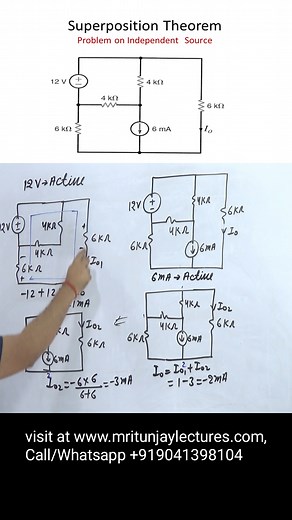 Superposition Theorem
Problem on Independent Source
12 V
4 kΩ
4 kΩ
6 kΩ
6 kΩ
6 mA
Io
12V→Active
12V
4KΩ
4KΩ
6KΩ
6KΩ
Io1
-12+12
1mA
12V
4KΩ
4KΩ
6KΩ
6KΩ
Io
6mA
6mA→Active
Io2
6KΩ
6mA
Io2 = -6×6/6+6 = -3mA
4KΩ
4KΩ
6KΩ
6KΩ
Io2
6mA
Io = Io1 + Io2
= 1-3 = -2mA
visit at www.mritunjaylectures.com,
Call/Whatsapp +919041398104